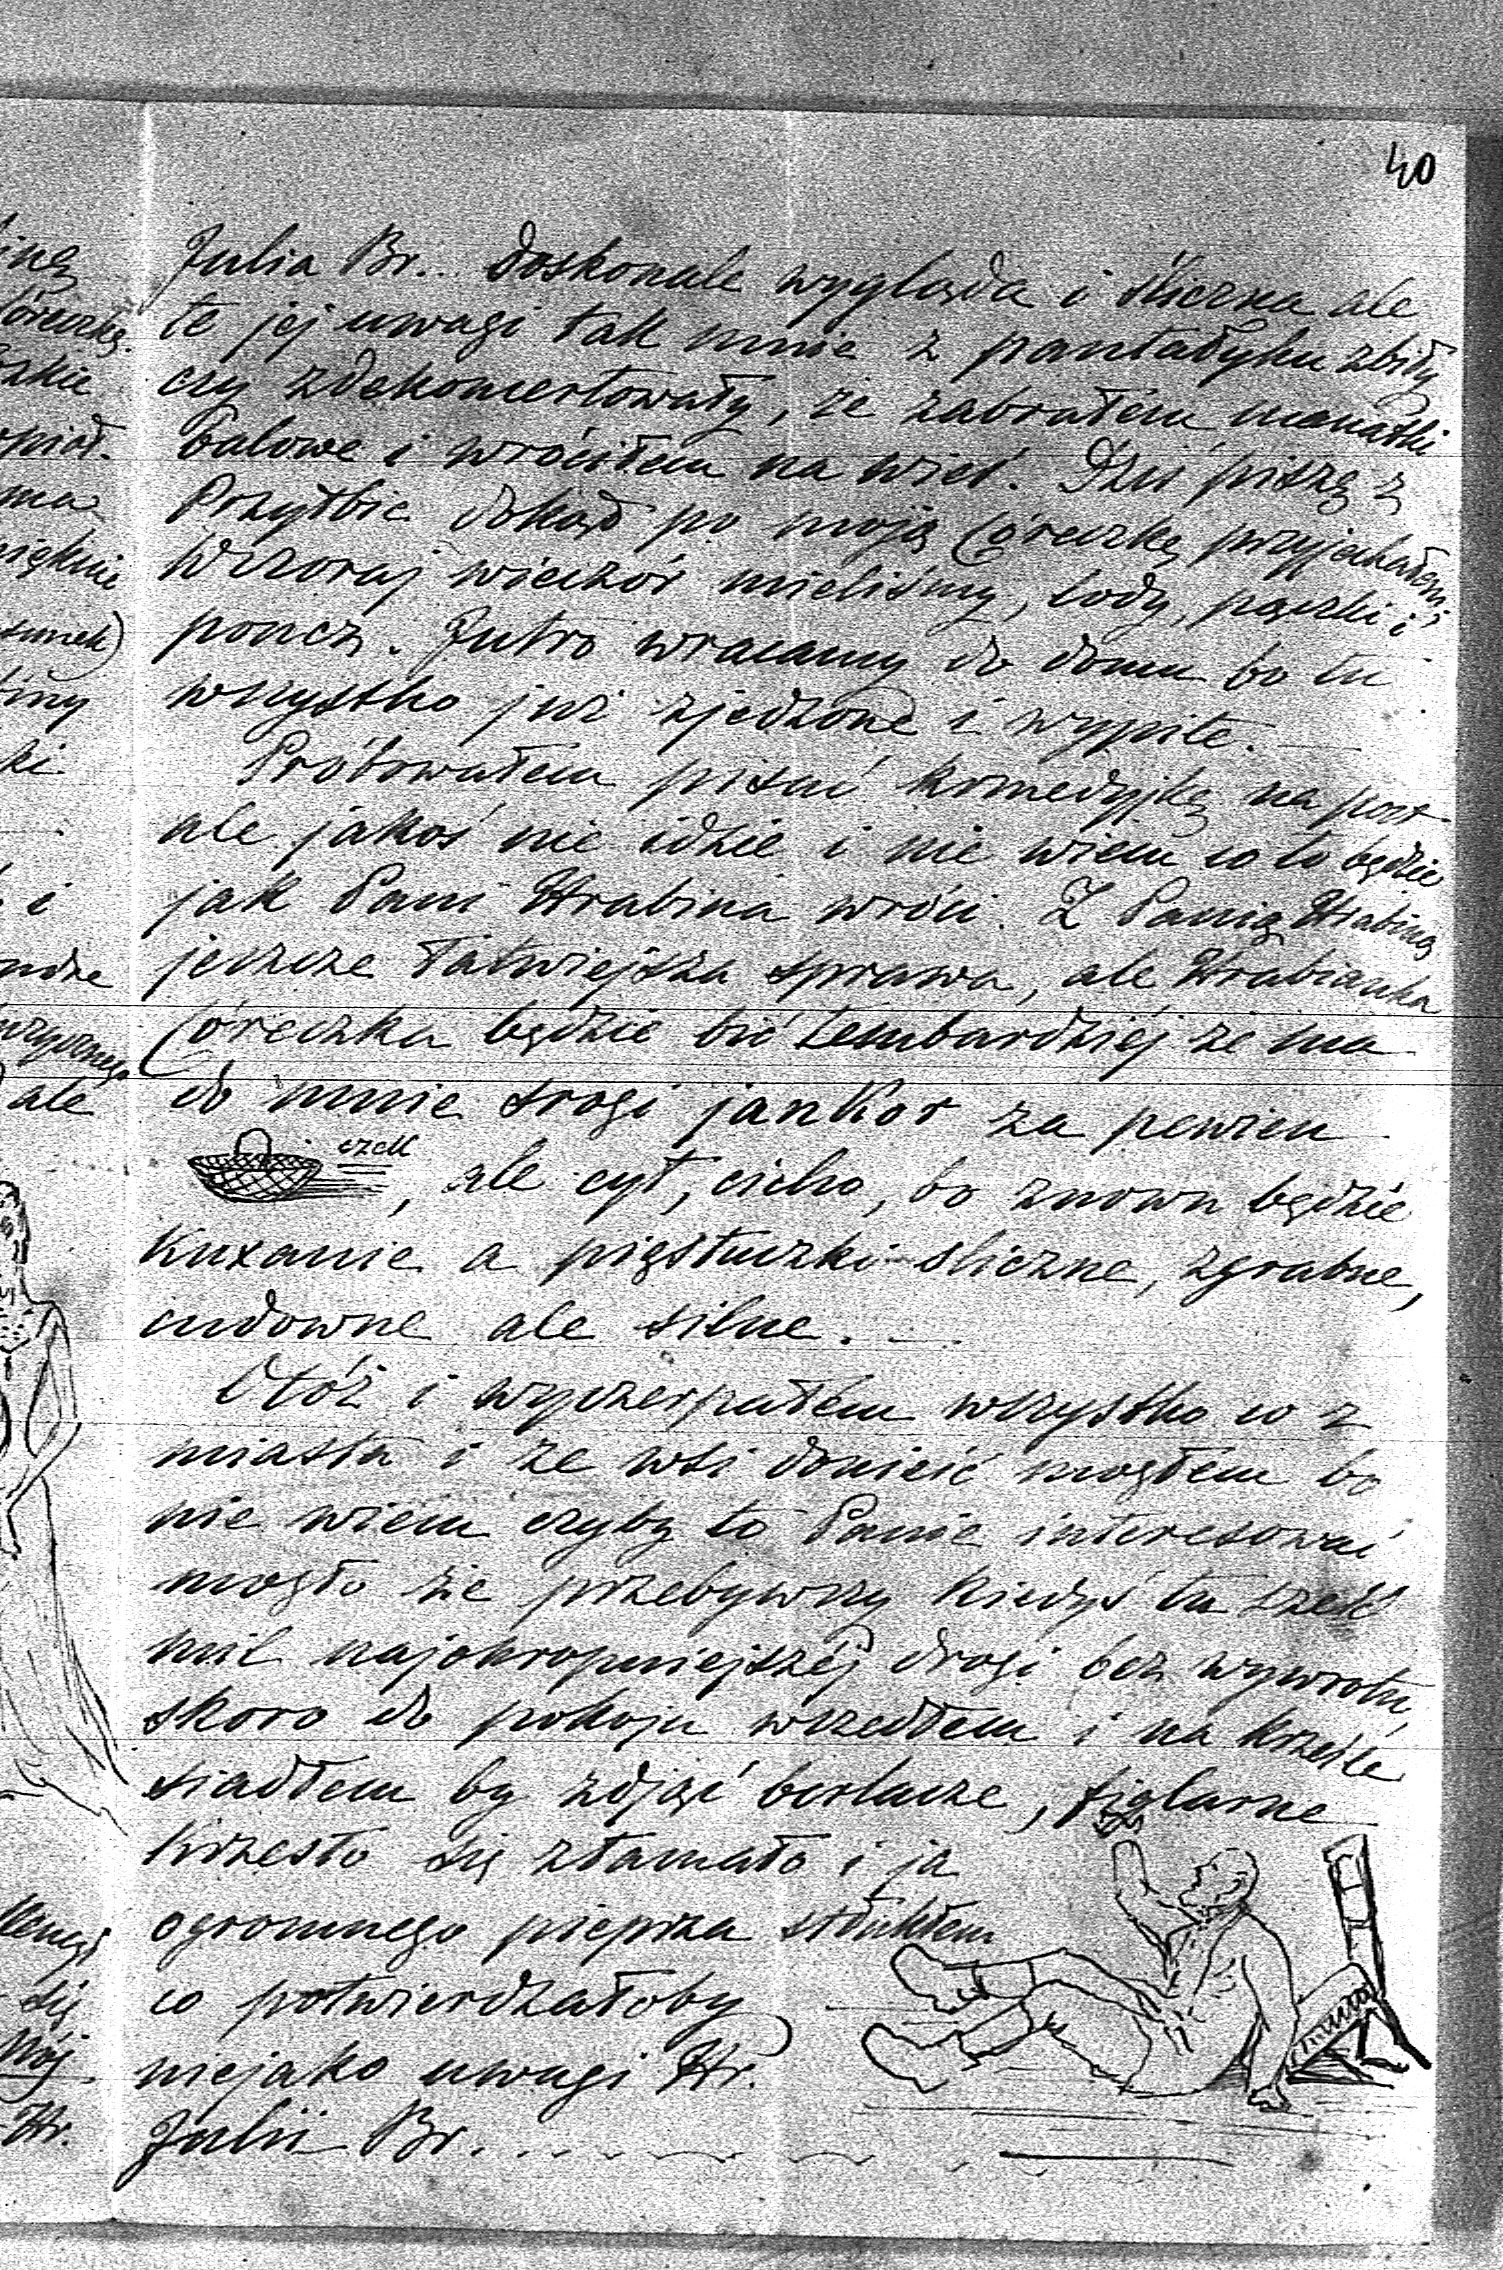 40
Julia Br... doskonale wygląda i śliczna ale
te jej uwagi tak mnie z pantałyku zbiły
czy zdekoncertowały, że zabrałem manatki
balowe i wróciłem na wieś. Dziś piszę z
Przyłbic dokąd po moją Córeczkę przyjechałem
Wczoraj wieczór mieliśmy, lody, pączki i
poncz. Jutro wracamy do domu bo tu
wszystko już zjedzone i wypite.
Próbowałem pisać komedyjkę na post
ale jakoś nie idzie i nie wiem co to będzie
jak Pani Hrabina wróci. Z Panią Hrabiną
jeszcze łatwiejsza sprawa, ale Hrabianka
Córeczka będzie bić tembardziej że ma
do mnie srogi jankor za pewien
czek, ale cyt, cicho, bo znowu będzie
Kuxanie a piąstuczki śliczne, zgrabne,
cudowne ale silne.
Otóż i wyczerpałem wszystko co z
miasta i ze wsi donieść mogłem bo
nie wiem czyby to Panie interesować
mogło że przebywszy kiedyś tu sześć
mil najokropniejszéj drogi bez wywrotu,
skoro do pokoju wszedłem i na krześle
siadłem by zdjąć berlacze, figlarne
Krzesło się złamało i ja
ogromnego pieprza stłukłem
co potwierdzałoby
niejako uwagi Hr.
Julii Br.